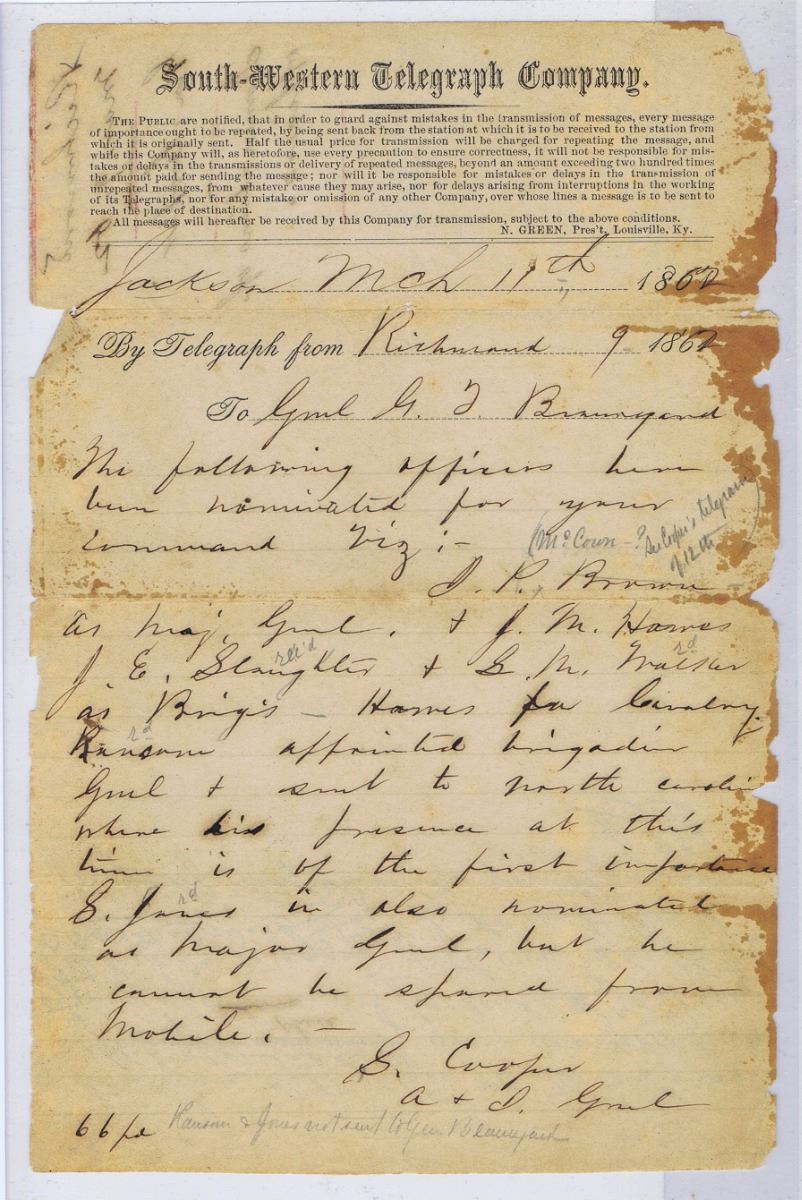 South-Western Telegraph Company.
THE PUBLIC are notified, that in order to guard against mistakes in the transmission of messages, every message
of importance ought to be repeated, by being sent back from the station at which it is to be received to the station from
which it is originally sent. Half the usual price for transmission will be charged for repeating the message, and
while this Company will, as heretofore, use every precaution to ensure correctness, it will not be responsible for mis-
takes or delays in the transmissions or delivery of repeated messages, beyond an amount exceeding two hundred times
the amount paid for sending the message; nor will it be responsible for mistakes or delays in the transmission of
unrepeated messages, from whatever cause they may arise, nor for delays arising from interruptions in the working
of its Telegraphs, nor for any mistake or omission of any other Company, over whose lines a message is to be sent to
reach the place of destination.
All messages will hereafter be received by this Company for transmission, subject to the above conditions.
N. GREEN, Pres't, Louisville, Ky.
Jackson Mch 11th 1862
By Telegraph from Richmond 9 1862
To Genl G. T. Beauregard
The following officers have
been nominated for your
command Viz :-
(McCown -? See Cooper's telegram
of 12th)
J. P. Brown
as Maj. Genl. & J. M. Hawes
J. E. Slaughter & L. M. Walker
rec'd rd
as Brigs - Hawes for Cavalry
rd
Ransom appointed brigadier
Genl & sent to north carolin
where his presence at this
time is of the first importance
rd
S. Jones is also nominated
as Major Genl, but he
cannot be spared from
Mobile. -
S. Cooper
A & I. Genl
66 pd Ransom & Jones not sent to Gen. Beauregard